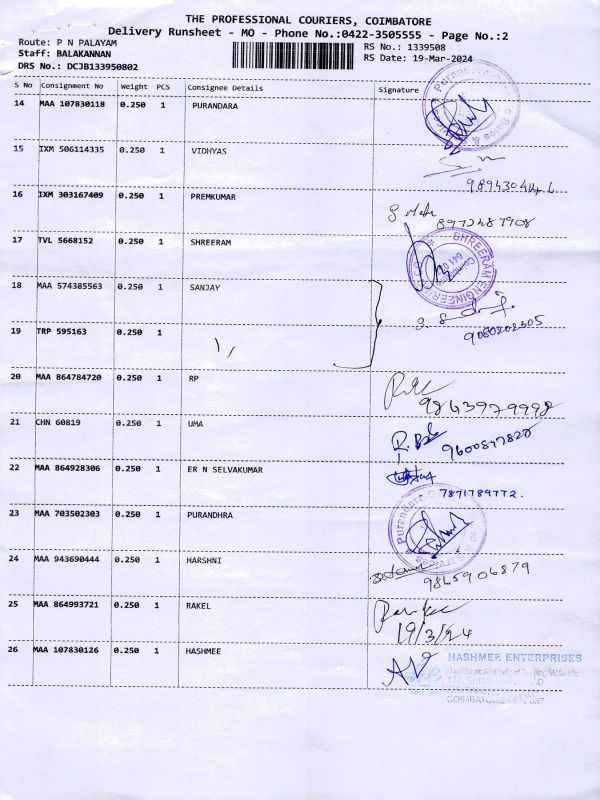 THE PROFESSIONAL COURIERS, COIMBATORE
Delivery Runsheet - MO - Phone No.:0422-3505555 - Page No.:2
Route: P N PALAYAM
RS No.: 1339508
Staff: BALAKANNAN
RS Date: 19-Mar-2024
DRS No.: DCJB133950802
S No Consignment No Weight PCS Consignee Details Signature
14 MAA 107830118 0.250 1 PURANDARA
15 IXM 506114335 0.250 1 VIDHYAS
16 IXM 303167409 0.250 1 PREMKUMAR
8973487908
17 TVL 5668152 0.250 1 SHREERAM
SHREERAM ENGINEERING
18 MAA 574385563 0.250 1 SANJAY
9080202305
19 TRP 595163 0.250 1
20 MAA 864784720 0.250 1 RP
9843979998
21 CHN 60819 0.250 1 UMA
9600847828
22 MAA 864928306 0.250 1 ER N SELVAKUMAR
7871789772.
23 MAA 703502303 0.250 1 PURANDHRA
24 MAA 943690444 0.250 1 HARSHNI
9865906879
25 MAA 864993721 0.250 1 RAKEL
19/3/24
26 MAA 107830126 0.250 1 HASHMEE
HASHMEE ENTERPRISES